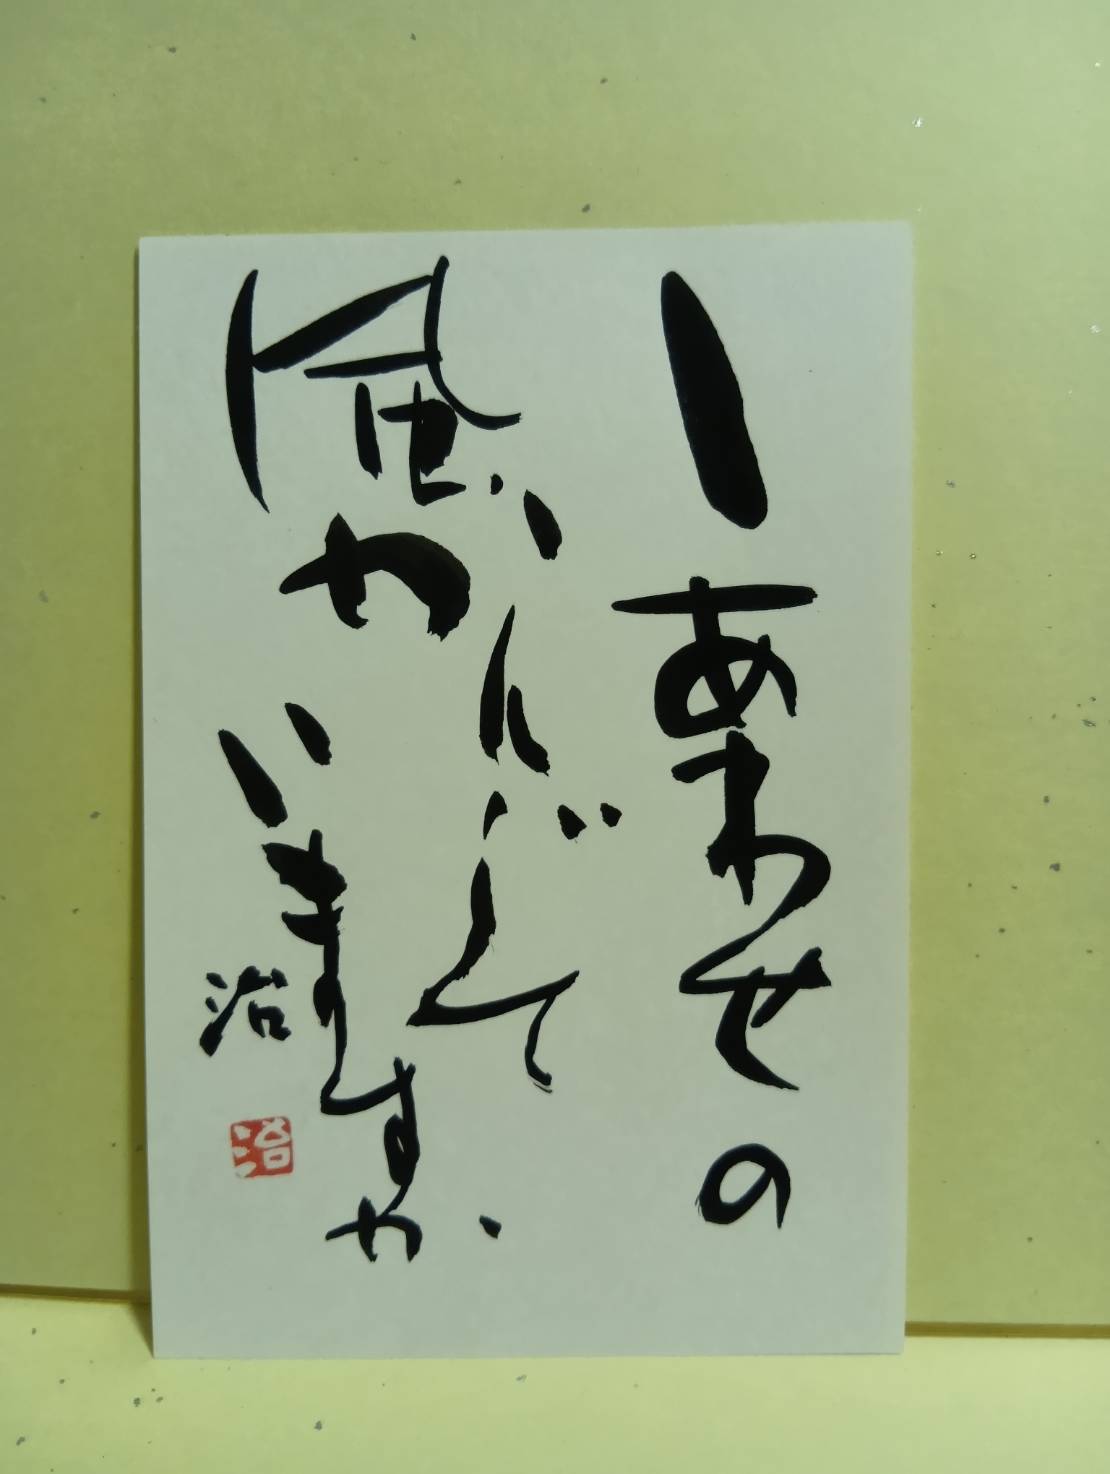 しあわせの
風かんじて
いますか
治
治